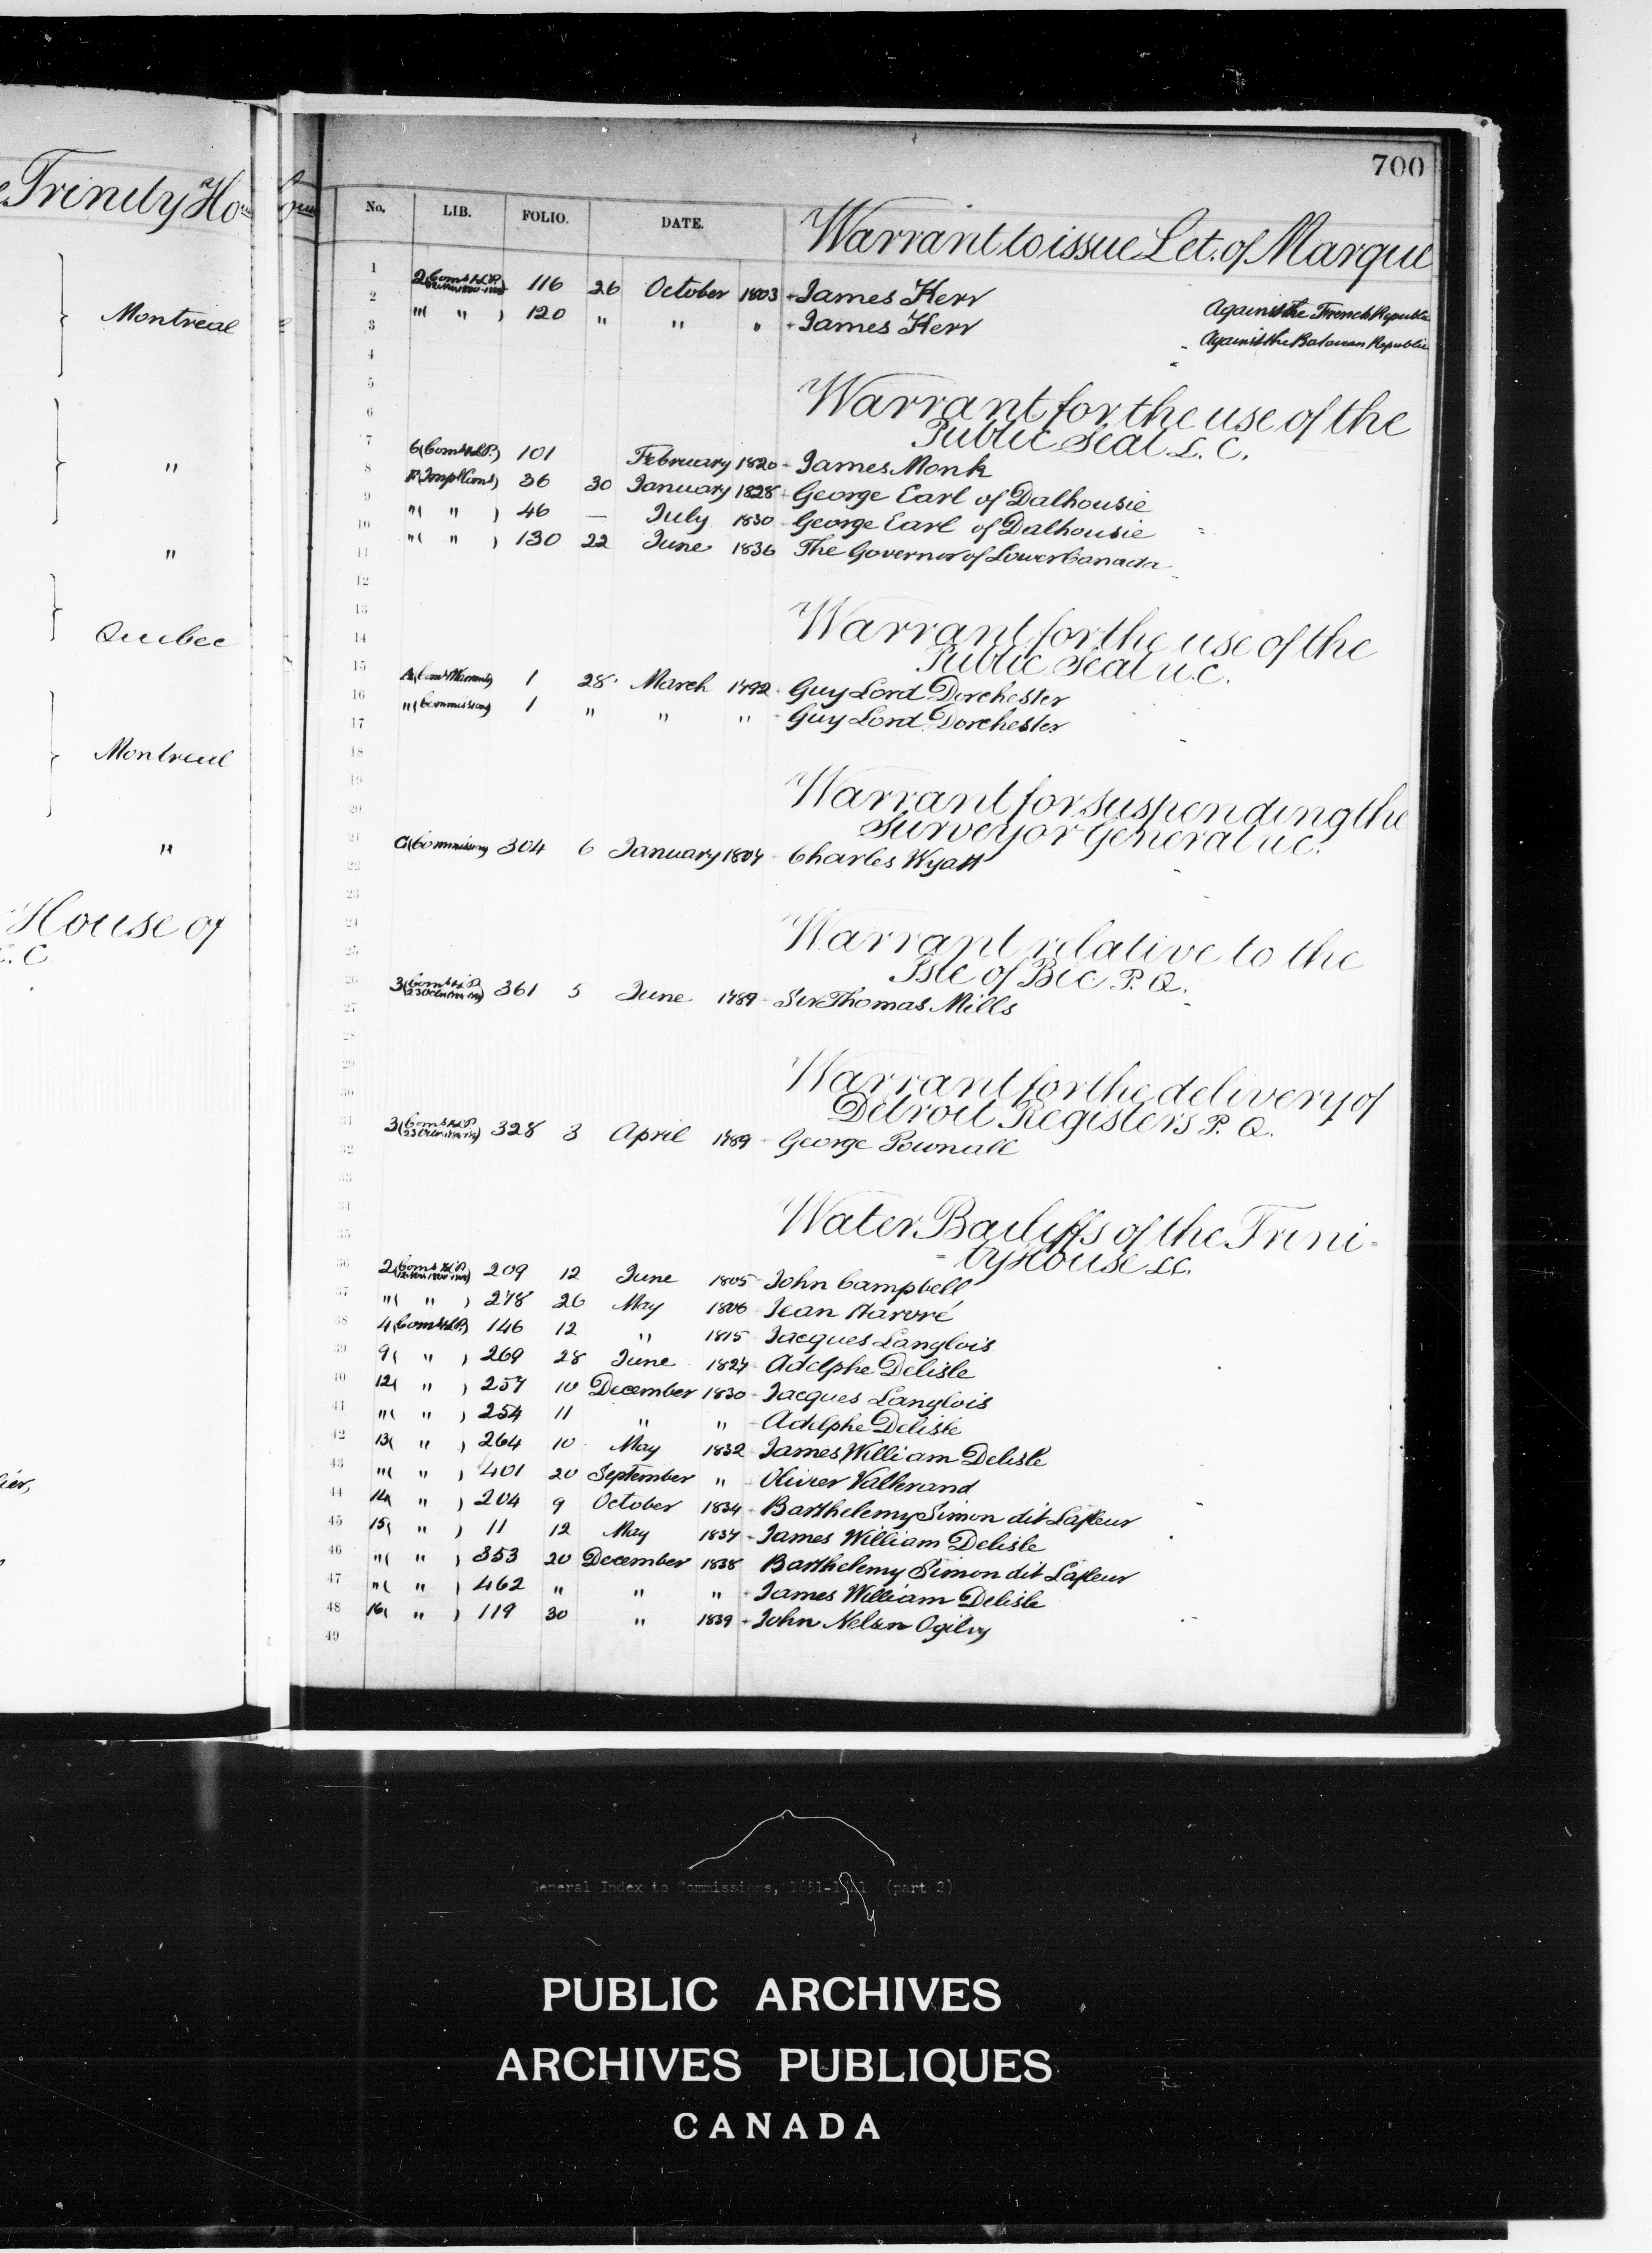 Trinity Hou
Montreal
"
"
Quebec
Montreal
"
House of
700
No. LIB. FOLIO. DATE. Warrant to issue Let. of Marque
1
2 116 26 October 1803 James Kerr Against the French Republic
" ( " ) 120 " " " James Kerr Against the Batavian Republic
2
3
4
5 Warrant for the use of the
6 Public Seal L. C.
7 6 (Coms & L.P.) 101 February 1820 James Monk
8 36 30 January 1828 George Earl of Dalhousie
9 " ( " ) 46 — July 1830 George Earl of Dalhousie
10 " ( " ) 130 22 June 1836 The Governor of Lower Canada
11
12
13 Warrant for the use of the
14 Public Seal U.C.
15 1 28 March 1792 Guy Lord Dorchester
16 " (Commissions) 1 " " " Guy Lord Dorchester
17
18
19 Warrant for suspending the
20 Surveyor General U.C.
21 (Commissions) 304 6 January 1807 Charles Wyatt
22
23
24 Warrant relative to the
25 Isle of Bic P. Q.
26 3 361 5 June 1789 Sir Thomas Mills
27
28
29 Warrant for the delivery of
30 Detroit Registers P. Q.
31 3 328 3 April 1789 George Pownall
32
33
34 Water Bailiffs of the Trini-
35 -ty House L.C.
36 2 209 12 June 1805 John Campbell
37 " ( " ) 278 26 May 1806 Jean
38 4 (Coms & L.P.) 146 12 " 1815 Jacques Langlois
39 9 ( " ) 269 28 June 1827 Adelphe Delisle
40 12 ( " ) 257 10 December 1830 Jacques Langlois
41 " ( " ) 254 11 " " Adelphe Delisle
42 13 ( " ) 264 10 May 1832 James William Delisle
43 " ( " ) 401 20 September " Olivier Vallerand
44 14 ( " ) 204 9 October 1834 Barthelemy Simon dit Lafleur
45 15 ( " ) 11 12 May 1837 James William Delisle
46 " ( " ) 353 20 December 1838 Barthelemy Simon dit Lafleur
47 " ( " ) 462 " " " James William Delisle
48 16 ( " ) 119 30 " 1839 John Nelson Ogilvy
49
General Index to Commissions, (part 2)
PUBLIC ARCHIVES
ARCHIVES PUBLIQUES
CANADA